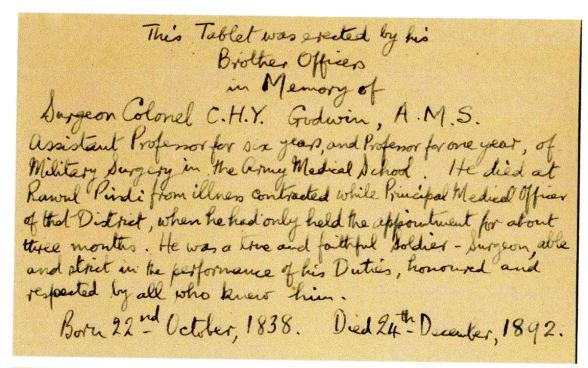 This Tablet was erected by his
Brother Officers
in Memory of
Surgeon Colonel C.H.Y. Godwin, A.M.S.
Assistant Professor for six years, and Professor for one year, of
Military Surgery in the Army Medical School. He died at
Rawul Pindi from illness contracted while Principal Medical Officer
of that District, when he had only held the appointment for about
three months. He was a true and faithful Soldier - Surgeon, able
and strict in the performance of his Duties, honoured and
respected by all who knew him.
Born 22nd October, 1838. Died 24th December, 1892.